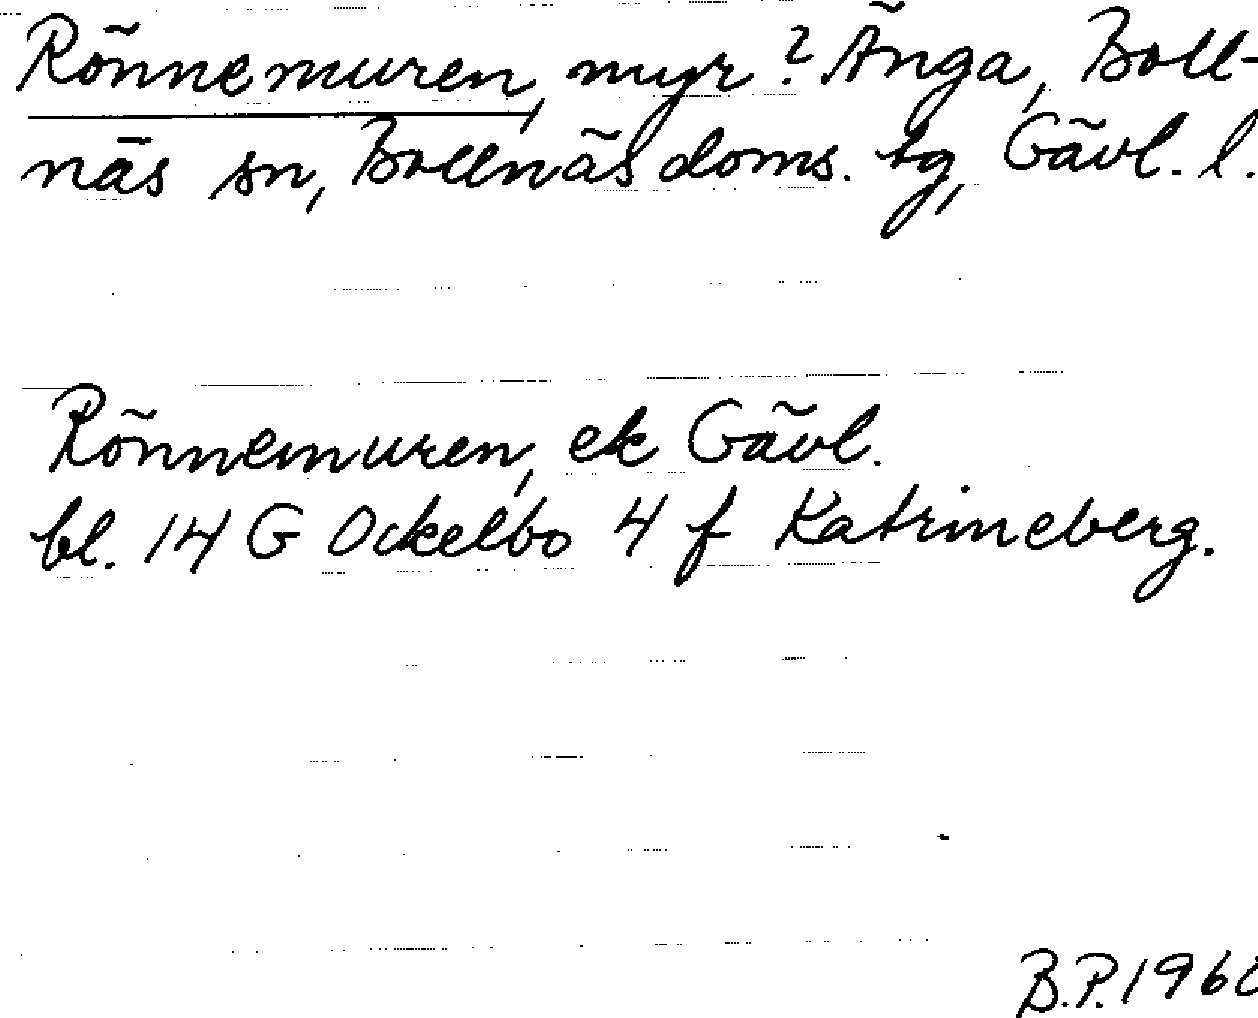 Rönnemuren, myr? Änga, Boll-
näs sn, Bollnäs doms. tg, Gävl. l.
Rönnemuren, ek Gävl.
bl. 14 G Ockelbo 4 f Katrineberg.
B.P. 196